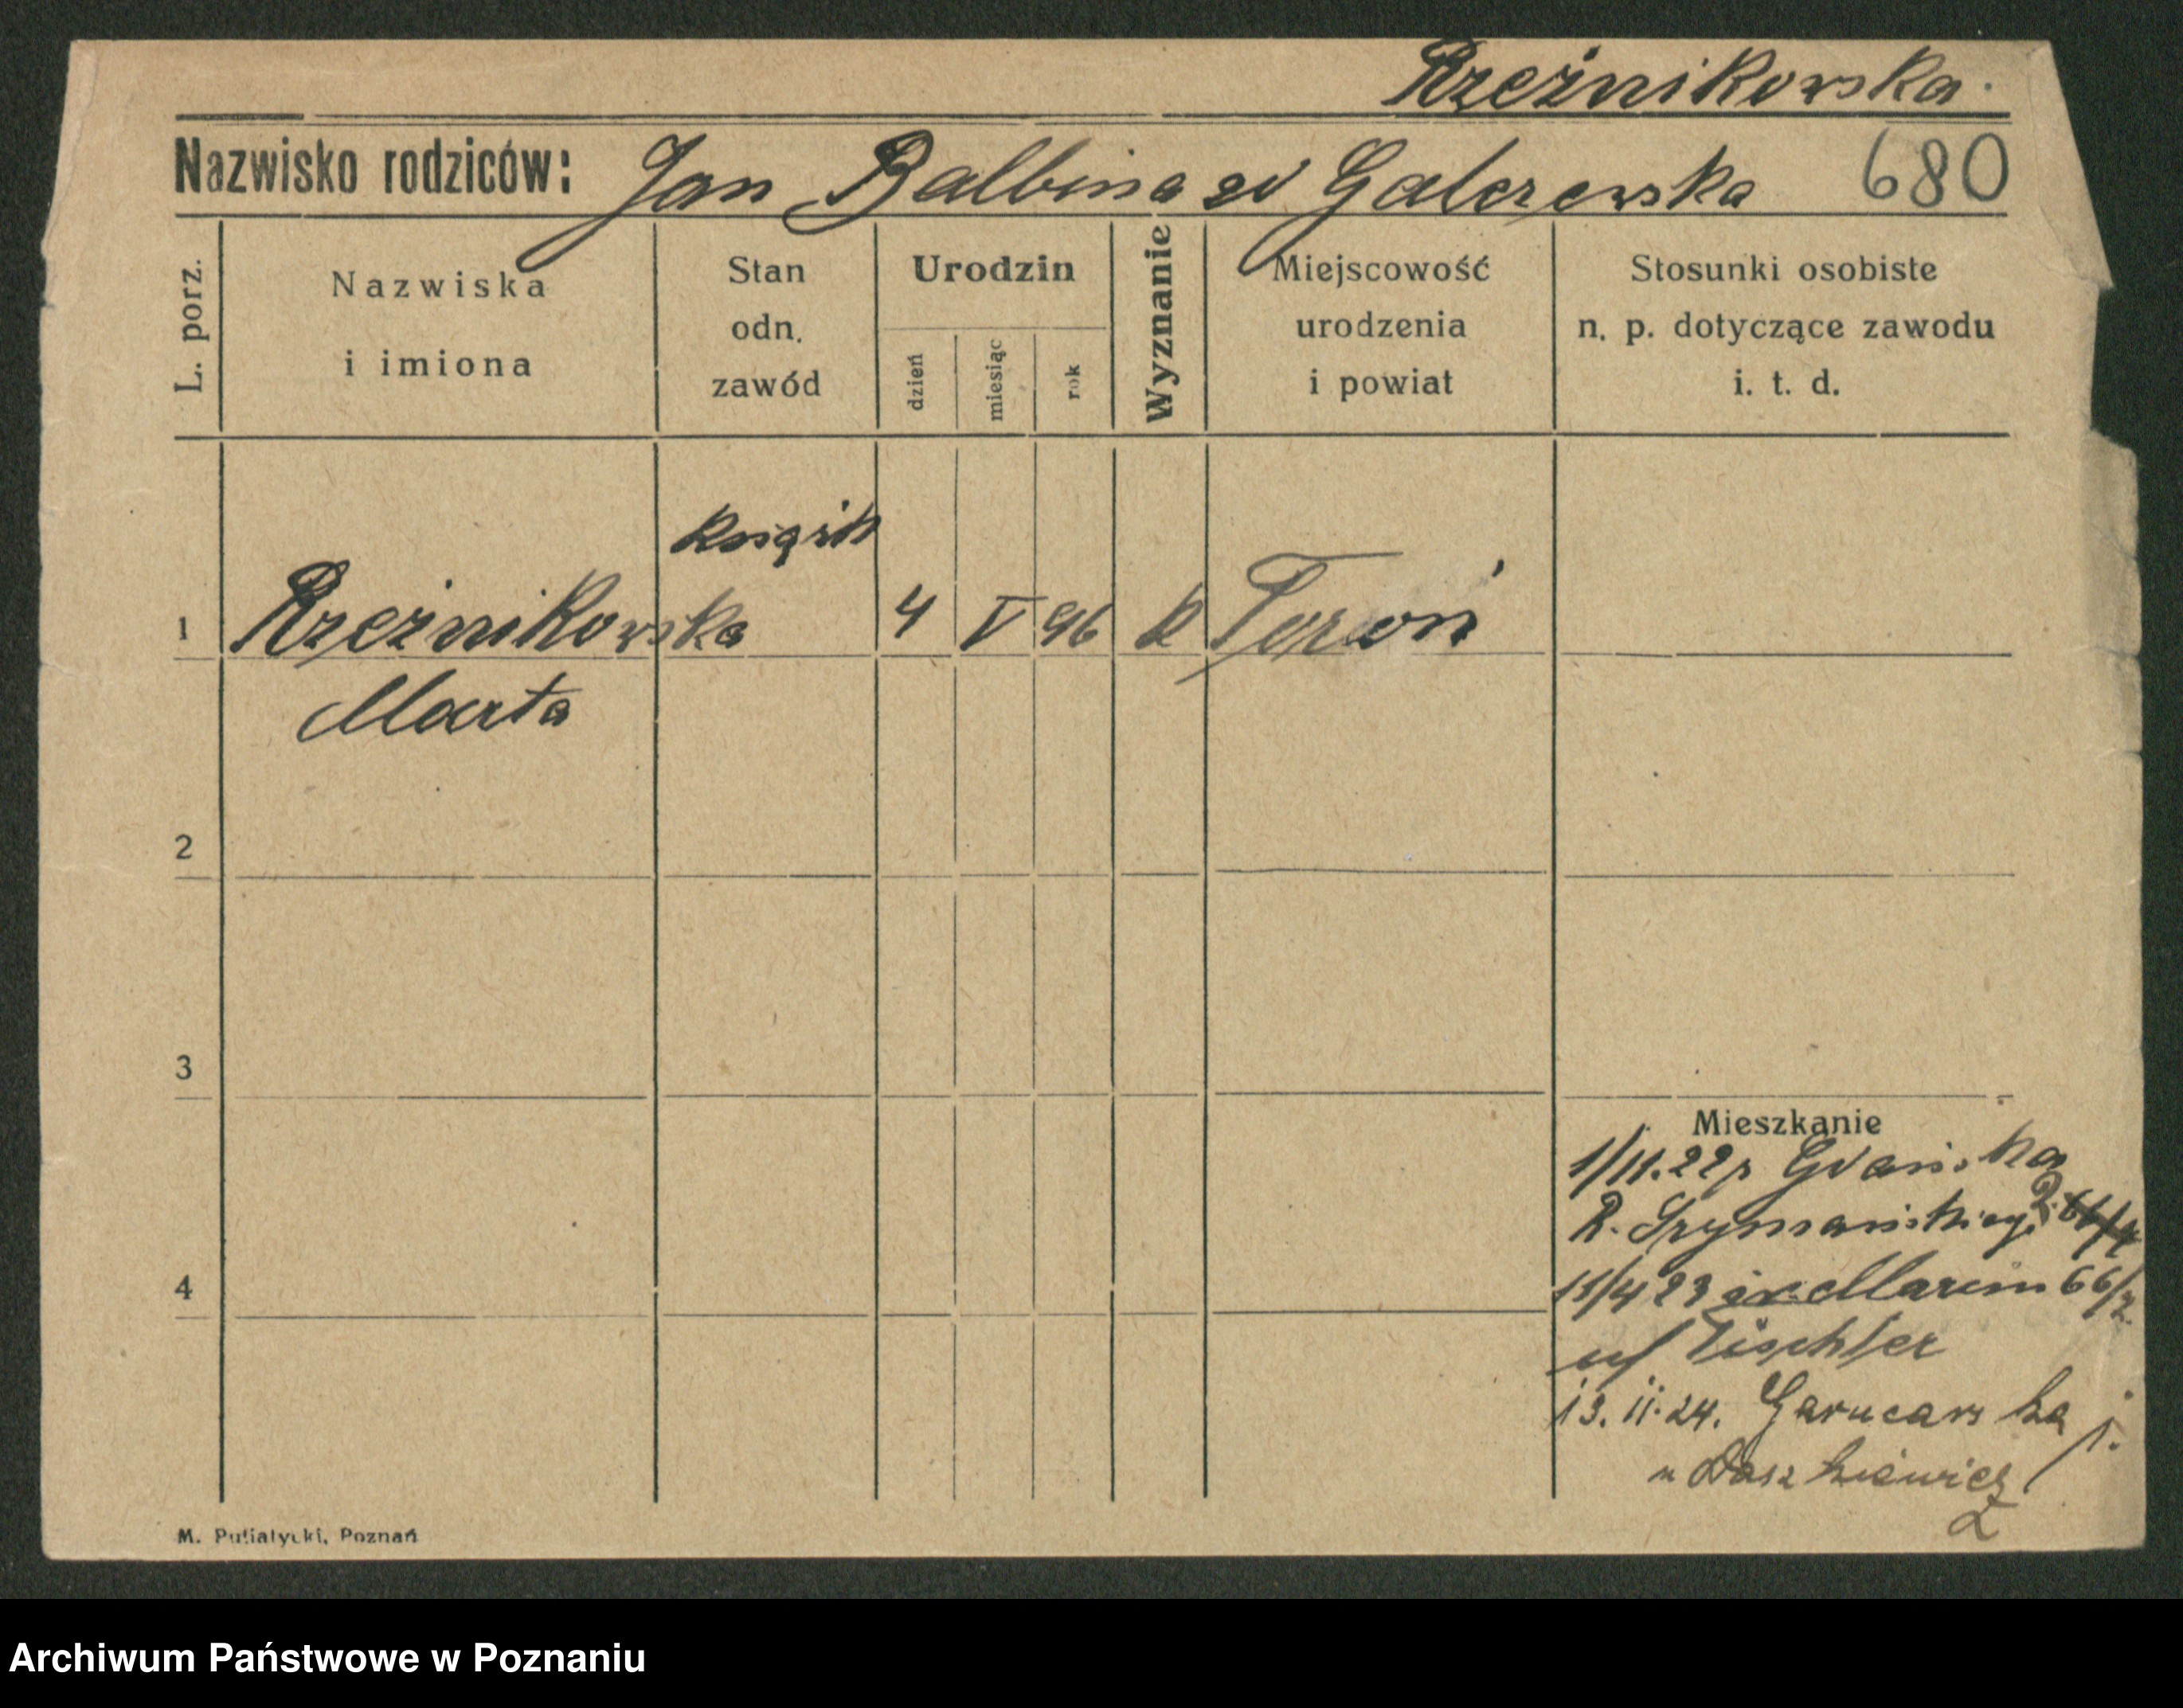 Rzeźnikowska.
Nazwisko rodziców: Jan Balbina zd Galczewska 680
L. porz.
Nazwiska i imiona
Stan odn. zawód
Urodzin
dzień
miesiąc
rok
Wyznanie
Miejscowość urodzenia i powiat
Stosunki osobiste n. p. dotyczące zawodu i. t. d.
1 Rzeźnikowska 4 V 96 k Toruń
Marta
2
3
Mieszkanie
1/11.22 Gdańska
R. Szymańskiego 2
4
11/4 23 św. Marcin 66/
u/ Tischler
13.11.24. Garncarska
u Daszkiewicz
M. Putiatycki, Poznań
Archiwum Państwowe w Poznaniu